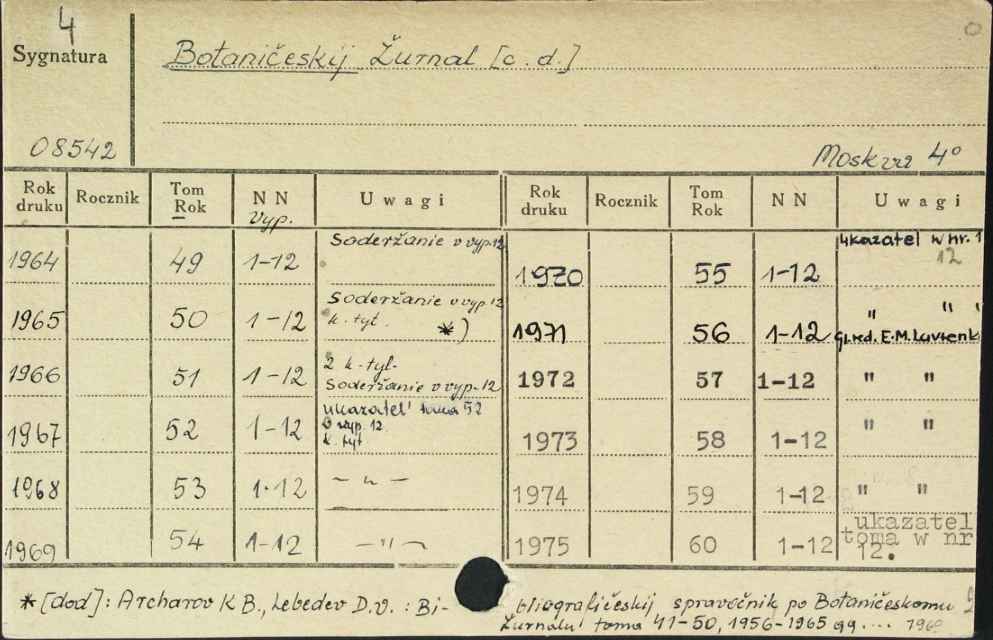 4
Sygnatura
Botaničeskij Žurnal [c.d.]
08542
Moskwa 4°
Rok druku Rocznik Tom Rok NN Vyp. Uwagi
1964 49 1-12 Soderžanie v vyp.12
1965 50 1-12 Soderžanie v vyp.12
k-tyt. *)
1966 51 1-12 2 k-tyt.
Soderžanie v vyp.12
1967 52 1-12 ukazatel' toma 52
v vyp. 12
k. tyt
1968 53 1-12 - " -
1969 54 1-12 - " -
Rok druku Rocznik Tom Rok NN Uwagi
1970 55 1-12 ukazatel w nr. 1
12
1971 56 1-12 " " "
Gł.red. E.M. Lavrenk
1972 57 1-12 " "
1973 58 1-12 " "
1974 59 1-12 " "
1975 60 1-12 ukazatel
toma w nr
12.
* [dod]: Archarov K B., Lebedev D.V. : Bi- bliografičeskij spravočnik po Botaničeskomu
Žurnalu toma 41-50, 1956-1965 gg....